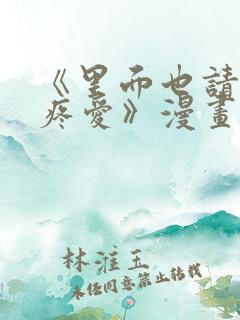 《里而也請
疼愛》漫畫
林淮玉
未經同意禁止轉載